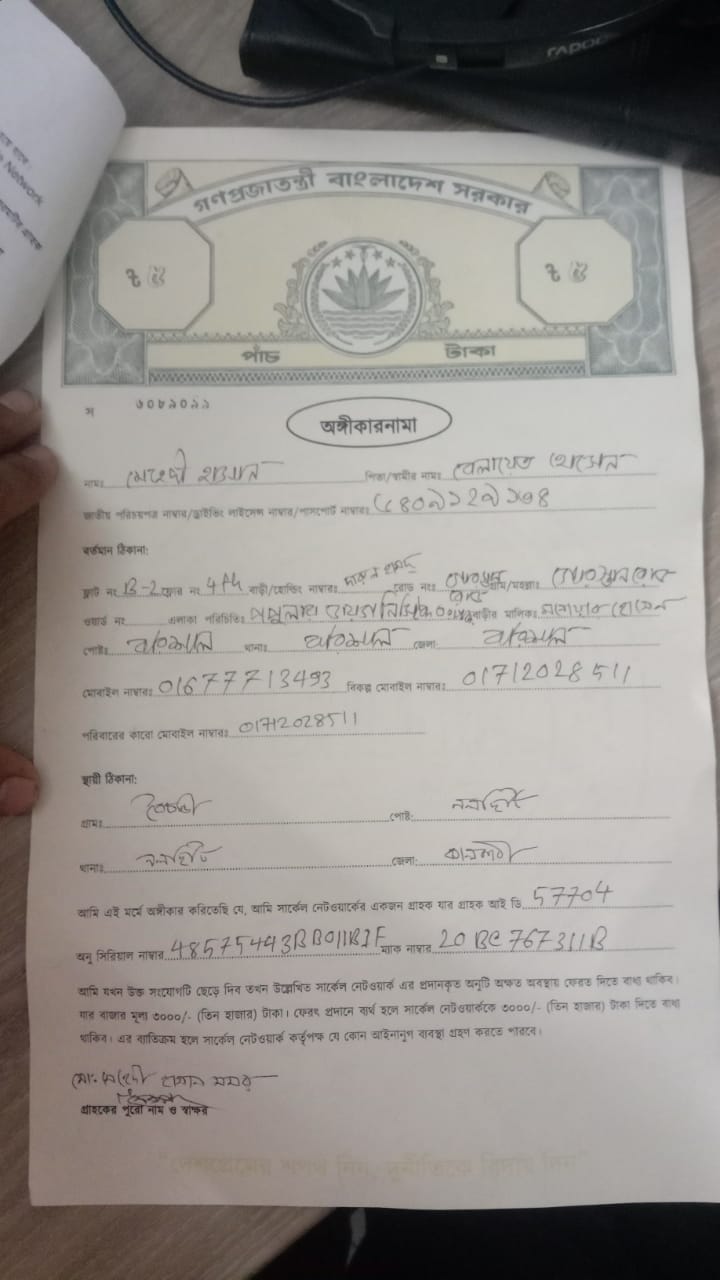 RAPOO
Network
গণপ্রজাতন্ত্রী বাংলাদেশ সরকার
৳ ৫ ৳ ৫
পাঁচ টাকা
স ৬০৮৯০২২
অঙ্গীকারনামা
নামঃ মেহেদী হাসান পিতা/স্বামীর নামঃ বেলায়েত হোসেন
জাতীয় পরিচয়পত্র নাম্বার/ড্রাইভিং লাইসেন্স নাম্বার/পাসপোর্ট নাম্বারঃ
বর্তমান ঠিকানা:
ফ্লাট নং B-2 ফ্লোর নং 4th বাড়ী/হোল্ডিং নাম্বারঃ রোড নংঃ গ্রাম/মহল্লাঃ
ওয়ার্ড নং এলাকা পরিচিতিঃ বাড়ীর মালিকঃ হোসেন
পোষ্টঃ বরিশাল থানাঃ বরিশাল জেলাঃ বরিশাল
মোবাইল নাম্বারঃ 01677713493 বিকল্প মোবাইল নাম্বারঃ 01712028511
পরিবারের কারো মোবাইল নাম্বারঃ 01712028511
স্থায়ী ঠিকানা:
গ্রামঃ পোষ্ট: নলছিটি
থানাঃ নলছিটি জেলা: ঝালকাঠী
আমি এই মর্মে অঙ্গীকার করিতেছি যে, আমি সার্কেল নেটওয়ার্কের একজন গ্রাহক যার গ্রাহক আই ডি 57704
অনু সিরিয়াল নাম্বার 48575443BB011B1F ম্যাক নাম্বার 20BC767311B
আমি যখন উক্ত সংযোগটি ছেড়ে দিব তখন উল্লেখিত সার্কেল নেটওয়ার্ক এর প্রদানকৃত অনুটি অক্ষত অবস্থায় ফেরত দিতে বাধ্য থাকিব।
যার বাজার মূল্য ৩০০০/- (তিন হাজার) টাকা। ফেরৎ প্রদানে ব্যর্থ হলে সার্কেল নেটওয়ার্ককে ৩০০০/- (তিন হাজার) টাকা দিতে বাধ্য
থাকিব। এর ব্যতিক্রম হলে সার্কেল নেটওয়ার্ক কর্তৃপক্ষ যে কোন আইনানুগ ব্যবস্থা গ্রহণ করতে পারবে।
মো: মেহেদী হাসান
গ্রাহকের পুরো নাম ও স্বাক্ষর
"দেশপ্রেমের শপথ নিন, দুর্নীতিকে বিদায় দিন"